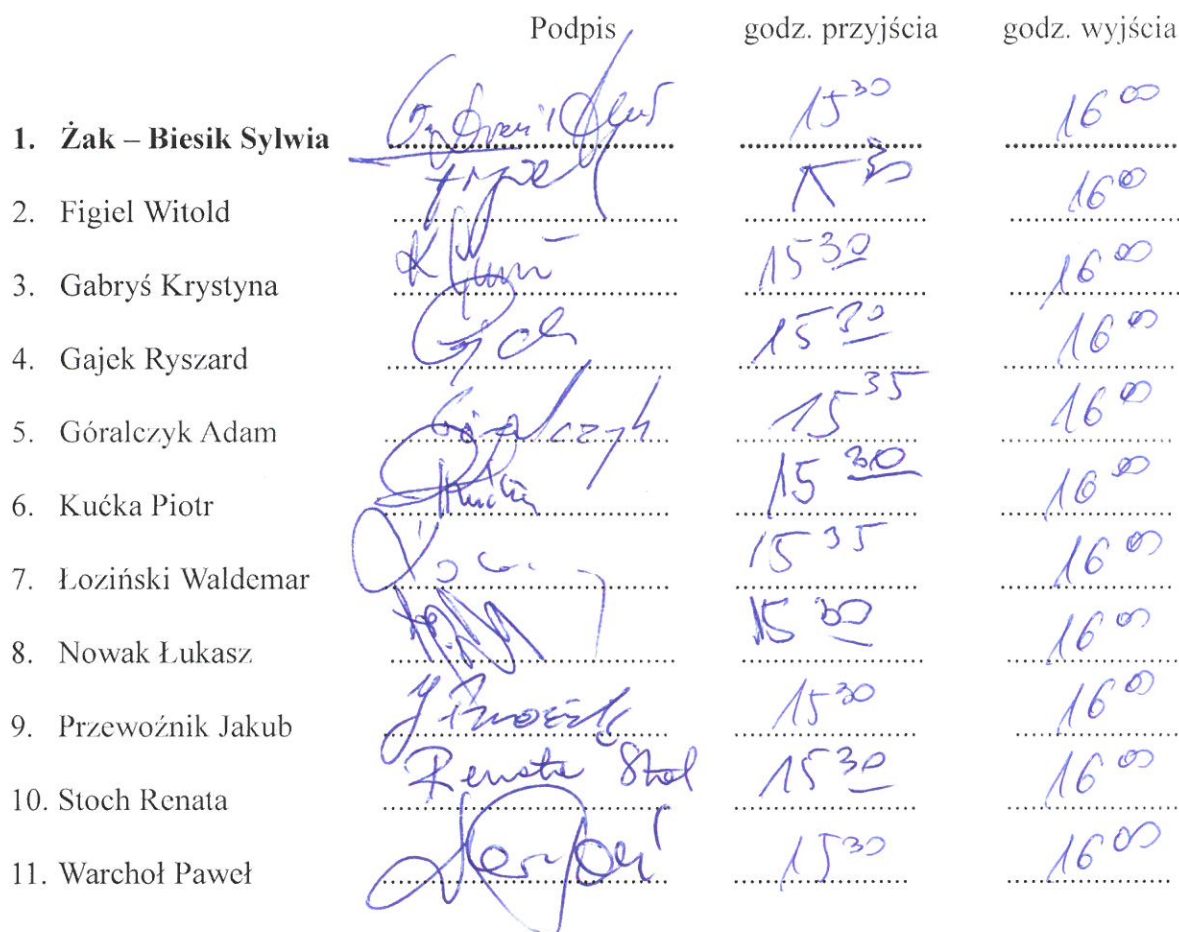 Podpis godz. przyjścia godz. wyjścia
1. Żak – Biesik Sylwia 15 30 16 00
2. Figiel Witold 15 30 16 00
3. Gabryś Krystyna 15 30 16 00
4. Gajek Ryszard 15 30 16 00
5. Góralczyk Adam Góralczyk 15 35 16 00
6. Kućka Piotr 15 30 16 00
7. Łoziński Waldemar 15 35 16 00
8. Nowak Łukasz 15 30 16 00
9. Przewoźnik Jakub 15 30 16 00
10. Stoch Renata Renata 15 30 16 00
11. Warchoł Paweł 15 30 16 00